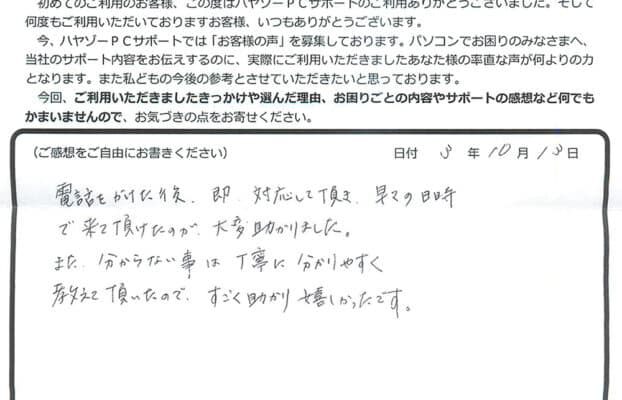 初めてのご利用のお客様、この度はハヤゾーPCサポートのご利用ありがとうございました。そして
何度もご利用いただいておりますお客様、いつもありがとうございます。
今、ハヤゾーPCサポートでは「お客様の声」を募集しております。パソコンでお困りのみなさまへ、
当社のサポート内容をお伝えするのに、実際にご利用いただきましたあなた様の率直な声が何よりの力
となります。また私どもの今後の参考とさせていただきたいと思っております。
今回、ご利用いただきましたきっかけや選んだ理由、お困りごとの内容やサポートの感想など何でも
かまいませんので、お気づきの点をお寄せください。
(ご感想をご自由にお書きください) 日付 3 年 10 月 13 日
電話をかけた後、即、対応して頂き、早での日時
で来て頂けたのが、大変助かりました。
また、分からない事は丁寧に分かりやすく
教えて頂いたので、すごく助かり嬉しかったです。